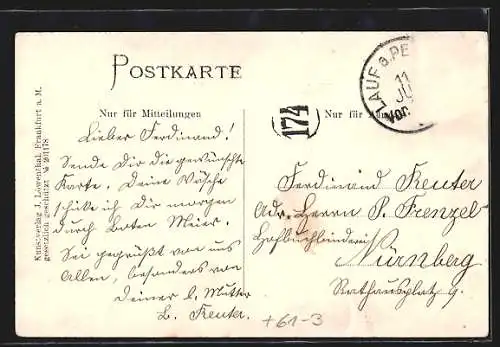 POSTKARTE
Nur für Mitteilungen
Nur für
LAUF a. PE
11
JU
Vor.
174
Lieber Ferdinand!
Sende Dir die gewünschte
Karte. Deine Wäsche
schicke ich Dir morgen
durch Boten Meier.
Sei gegrüßt von uns
Allen, besonders von
Deiner l. Mutter
B. Reuter.
Ferdinand Reuter
Adr. Herrn P. Frenzel
Hofbuchbinderei
Nürnberg
Rathausplatz 9.
+61-3
Kunstverlag J. Löwenthal, Frankfurt a. M.
gesetzlich geschützt № 201178